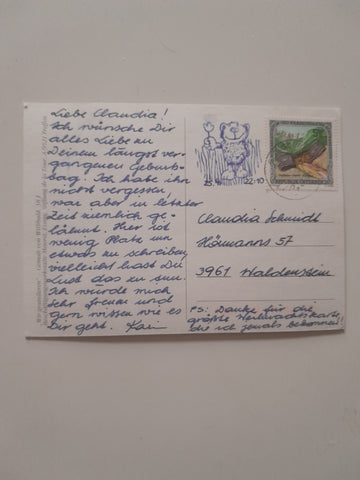 Liebe Claudia!
Ich wünsche Dir
alles Liebe zu
Deinem längst ver-
gangenen Geburts-
tag. Ich habe ihn
nicht vergessen
war aber in letzter
Zeit ziemlich ge-
lähmt. Hier ist
wenig Platz um
etwas zu schreiben
vielleicht hast Du
Lust das zu tun.
Ich würde mich
sehr freuen und
gern wissen wie es
Dir geht. Kai
22-10
Claudia Schmidt
Hörmanns 57
3961 Waldenstein
PS: Danke für die
größte Weihnachtskarte
die ich jemals bekommen